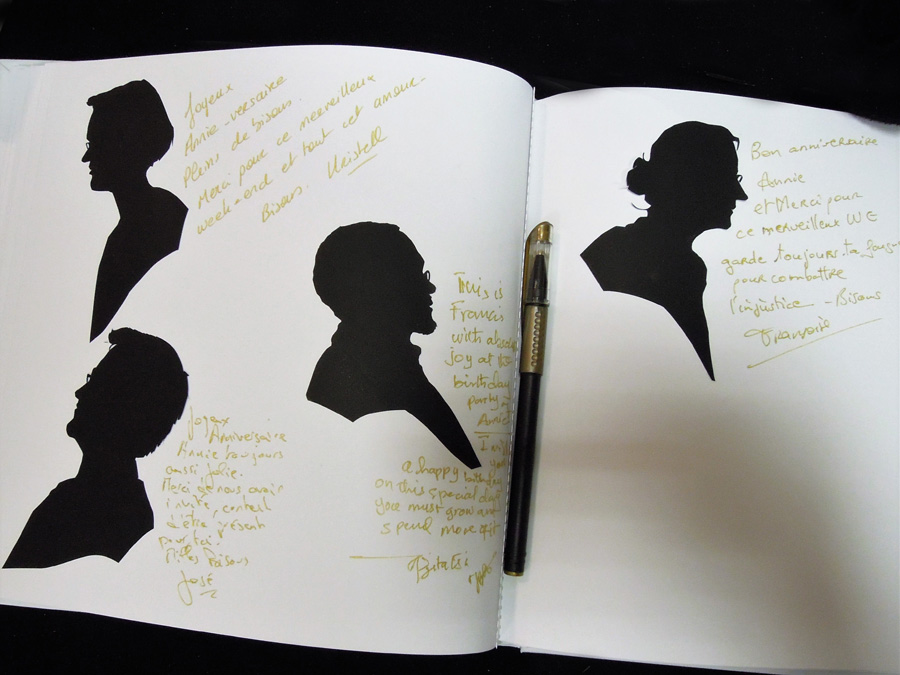 Joyeux
Annie-versaire
Pleins de bisous.
Merci pour ce merveilleux
week-end et tout cet amour.
Bisous. Kristell
Joyeux
Anniversaire
Annie toujours
aussi jolie.
Merci de nous avoir
invité, content
d'être présent
pour toi.
Milles Bisous
José
This is
Francis
with absolu
joy at the
birthday
party
Annie
I wish
you
a happy birthday
on this special day
you must grow and
spend more
Bon anniversaire
Annie
et Merci pour
ce merveilleux WE
garde toujours ta
pour combattre
l'injustice - Bisous
Françoise